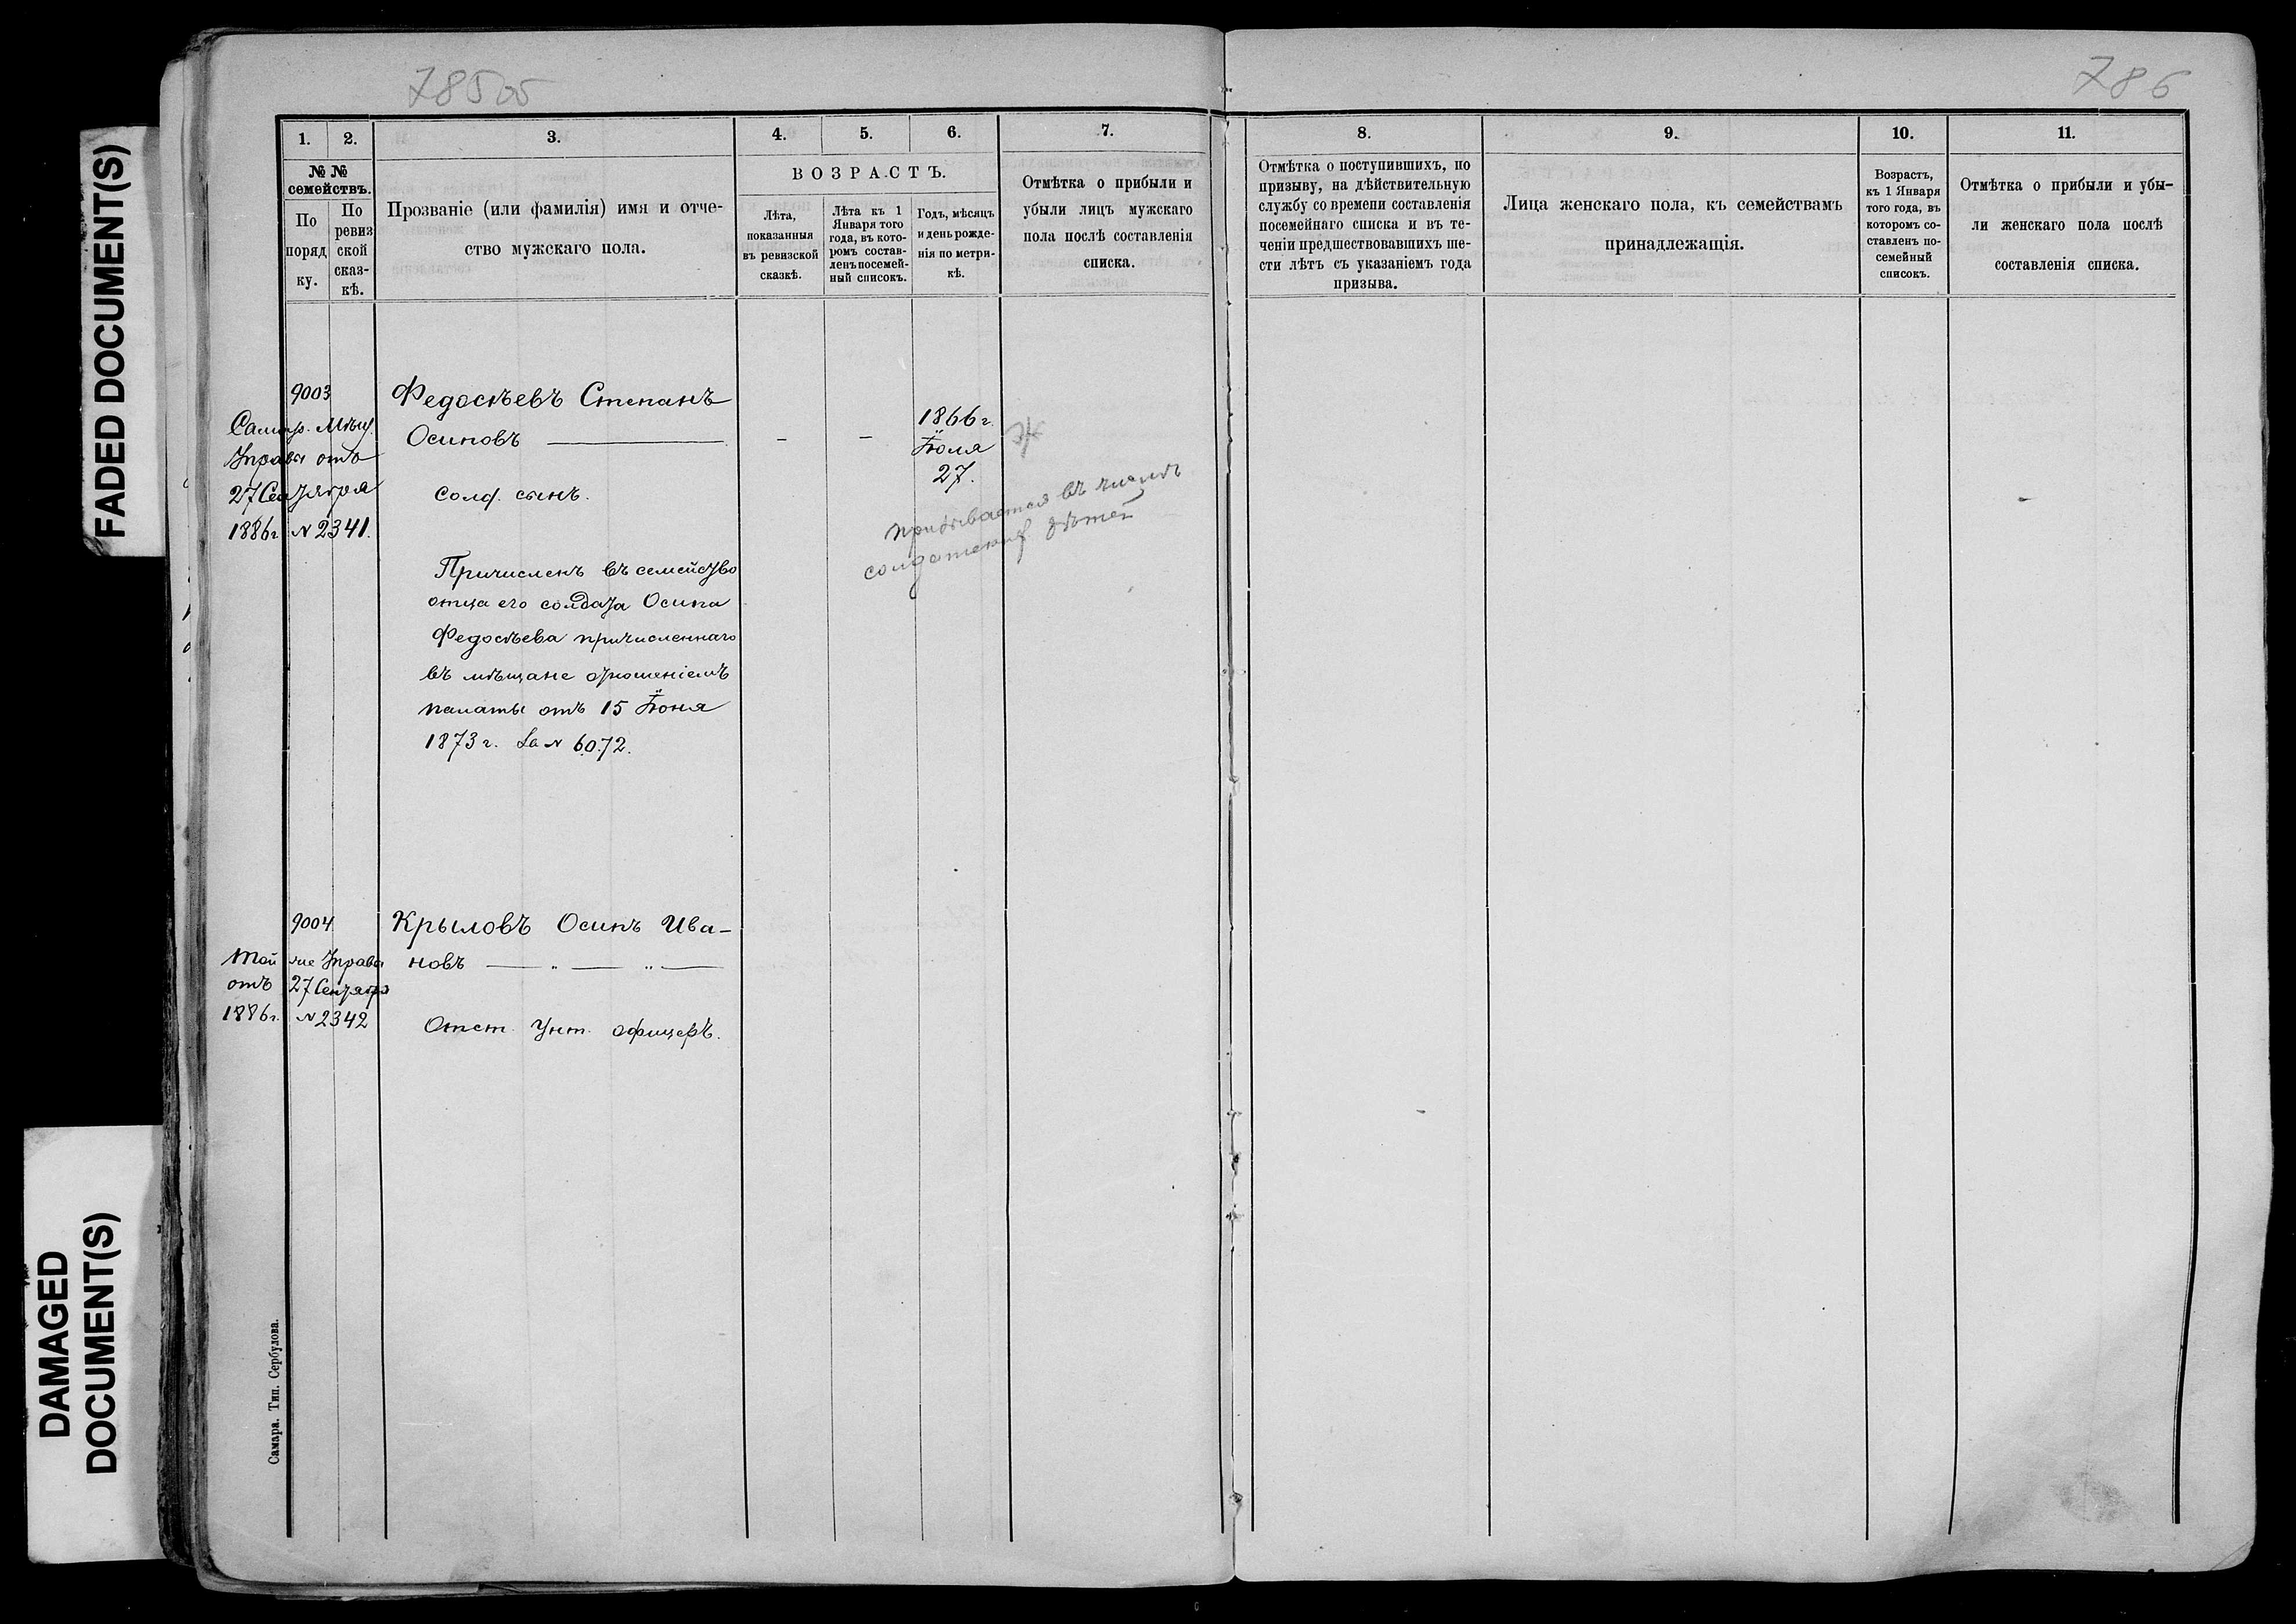 FADED DOCUMENT(S)
DAMAGED
DOCUMENT(S)
785об
786
1.
2.
3.
4.
5.
6.
7.
8.
9.
10.
11.
№ №
семействъ.
По
поряд
ку.
По
ревиз
ской
сказ-
кѣ.
Прозваніе (или фамилія) имя и отче-
ство мужскаго пола.
ВОЗРАСТЪ.
Лѣта,
показанныя
въ ревизской
сказкѣ.
Лѣта къ 1
Января того
года, въ кото-
ромъ состав-
ленъ посемей-
ный списокъ.
Годъ, мѣсяцъ
и день рожде-
нія по метри-
кѣ.
Отмѣтка о прибыли и
убыли лицъ мужскаго
пола послѣ составленія
списка.
Отмѣтка о поступившихъ, по
призыву, на дѣйствительную
службу со времени составленія
посемейнаго списка и въ те-
ченіи предшествовавшихъ ше-
сти лѣтъ съ указаніемъ года
призыва.
Лица женскаго пола, къ семействамъ
принадлежащія.
Возрастъ,
къ 1 Января
того года, въ
которомъ со-
ставленъ по-
семейный
списокъ.
Отмѣтка о прибыли и убы-
ли женскаго пола послѣ
составленія списка.
9003
Самар. Мѣщ.
Управы отъ
27 Сентября
1886г. № 2341.
Федосѣевъ Степанъ
Осиповъ —
солд. сынъ.
– –
1866 г.
Іюля
27.
призывается въ числѣ
солдатскихъ дѣтей
Причисленъ въ семейство
отца его солдата Осипа
Федосѣева причисленнаго
въ мѣщане отношеніемъ
палаты отъ 15 Іюня
1873 г. за № 6072.
9004
Той же Управы
отъ 27 Сентября
1886г. № 2342
Крыловъ Осипъ Ива-
новъ — „ — „ —
Отст. Унт. офицеръ.
Самара. Тип. Сербулова.